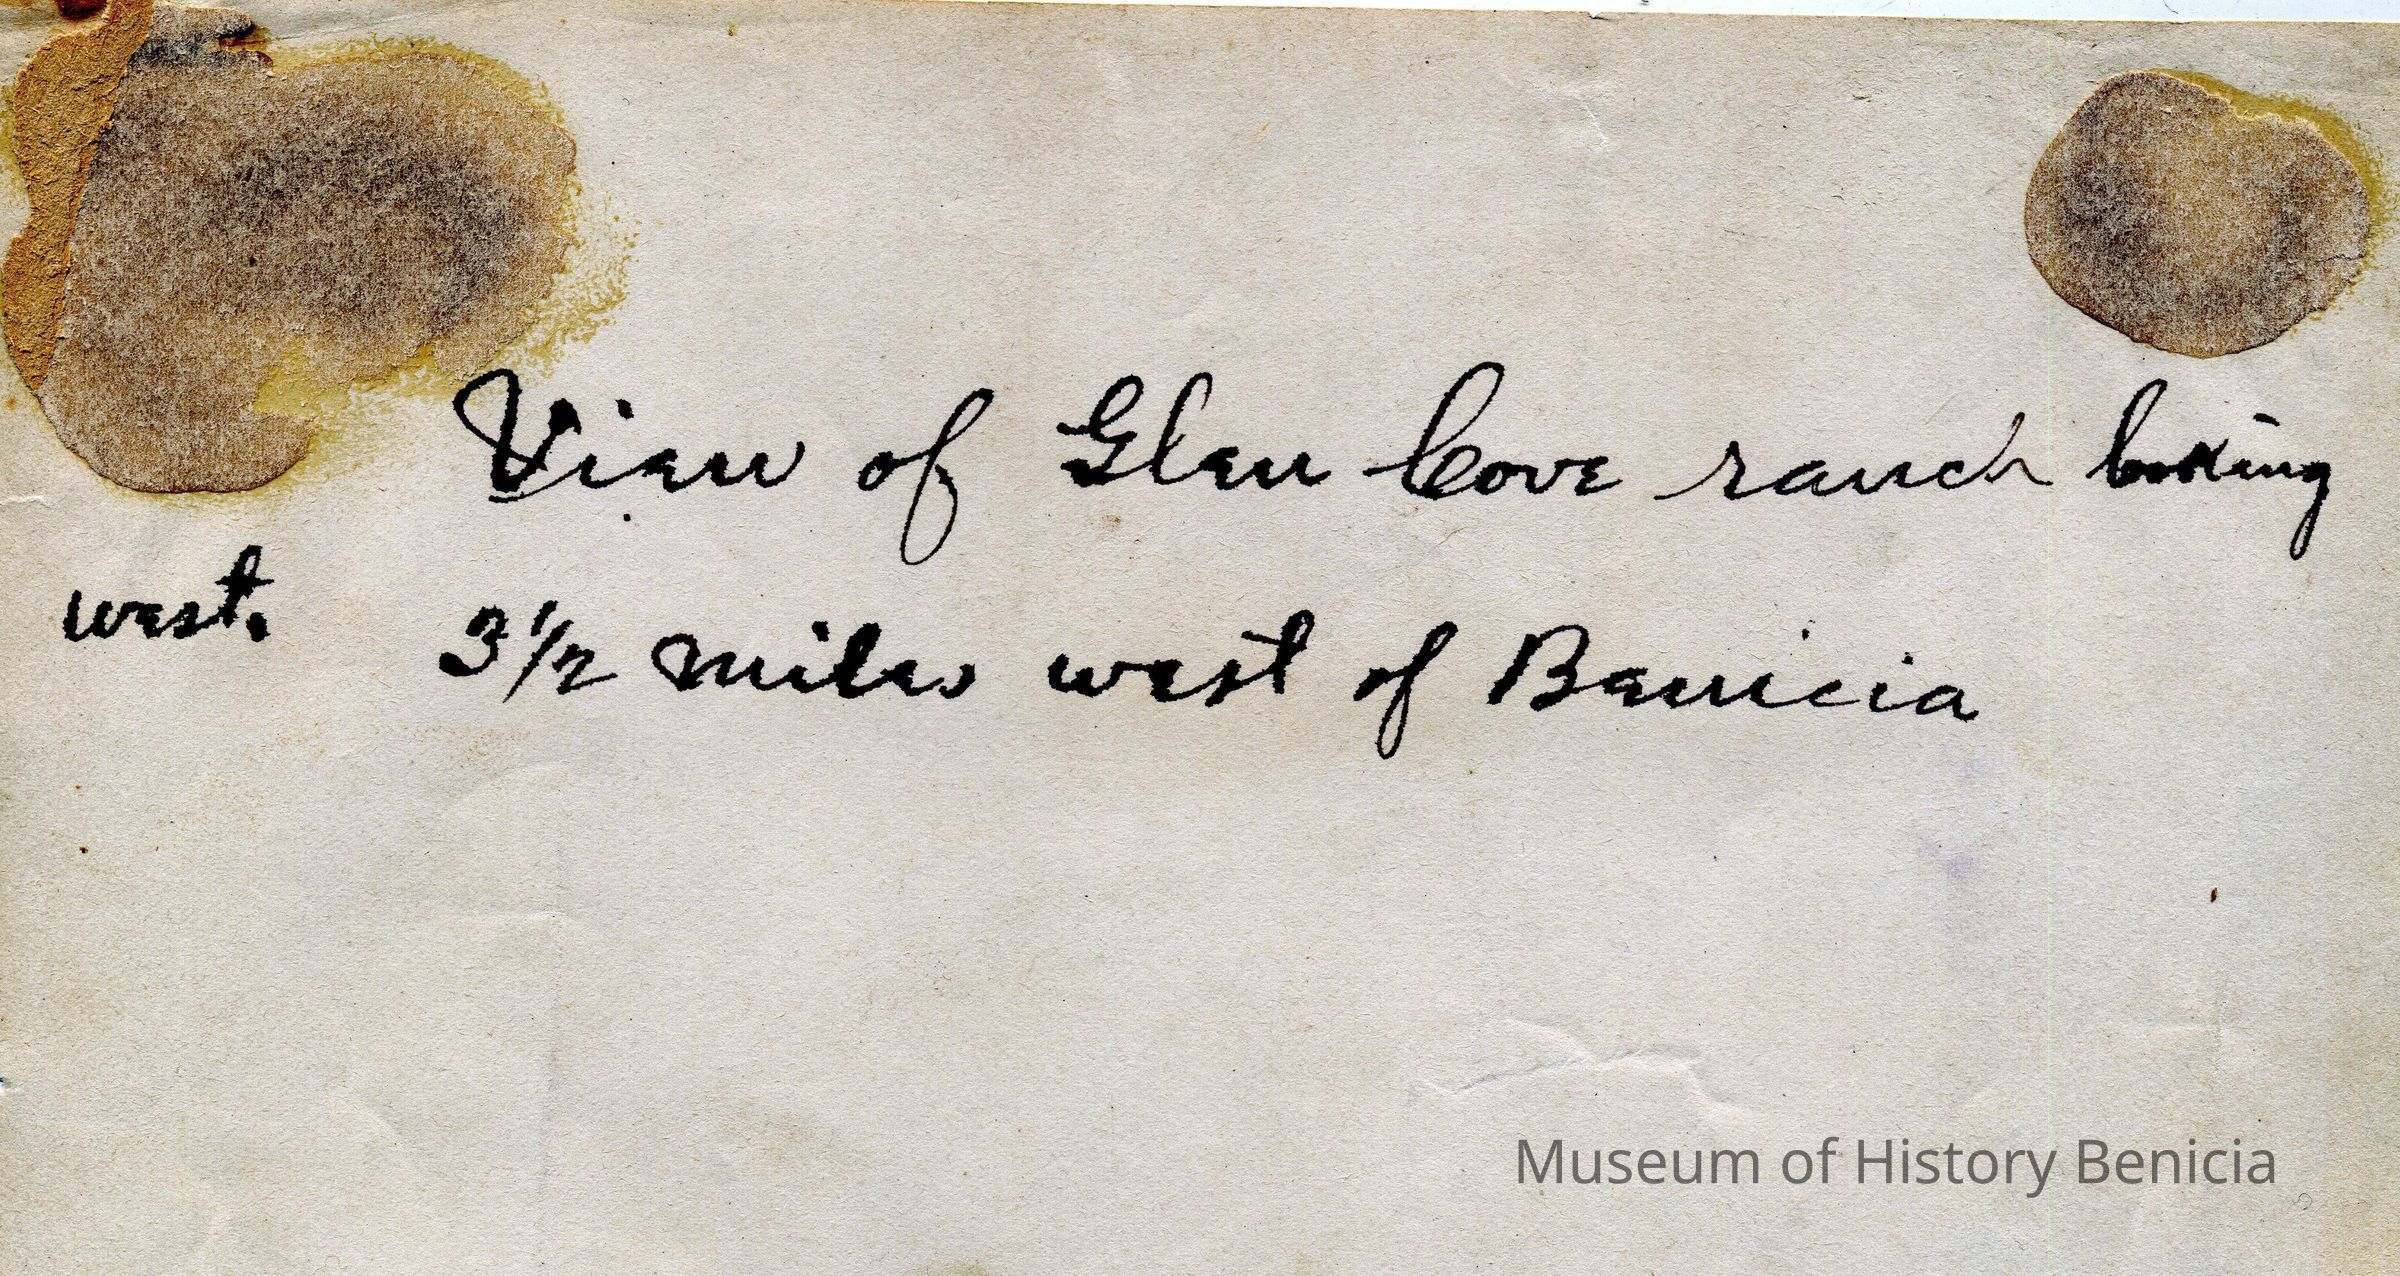 View of Glen Cove ranch looking
west. 3½ miles west of Benicia
Museum of History Benicia